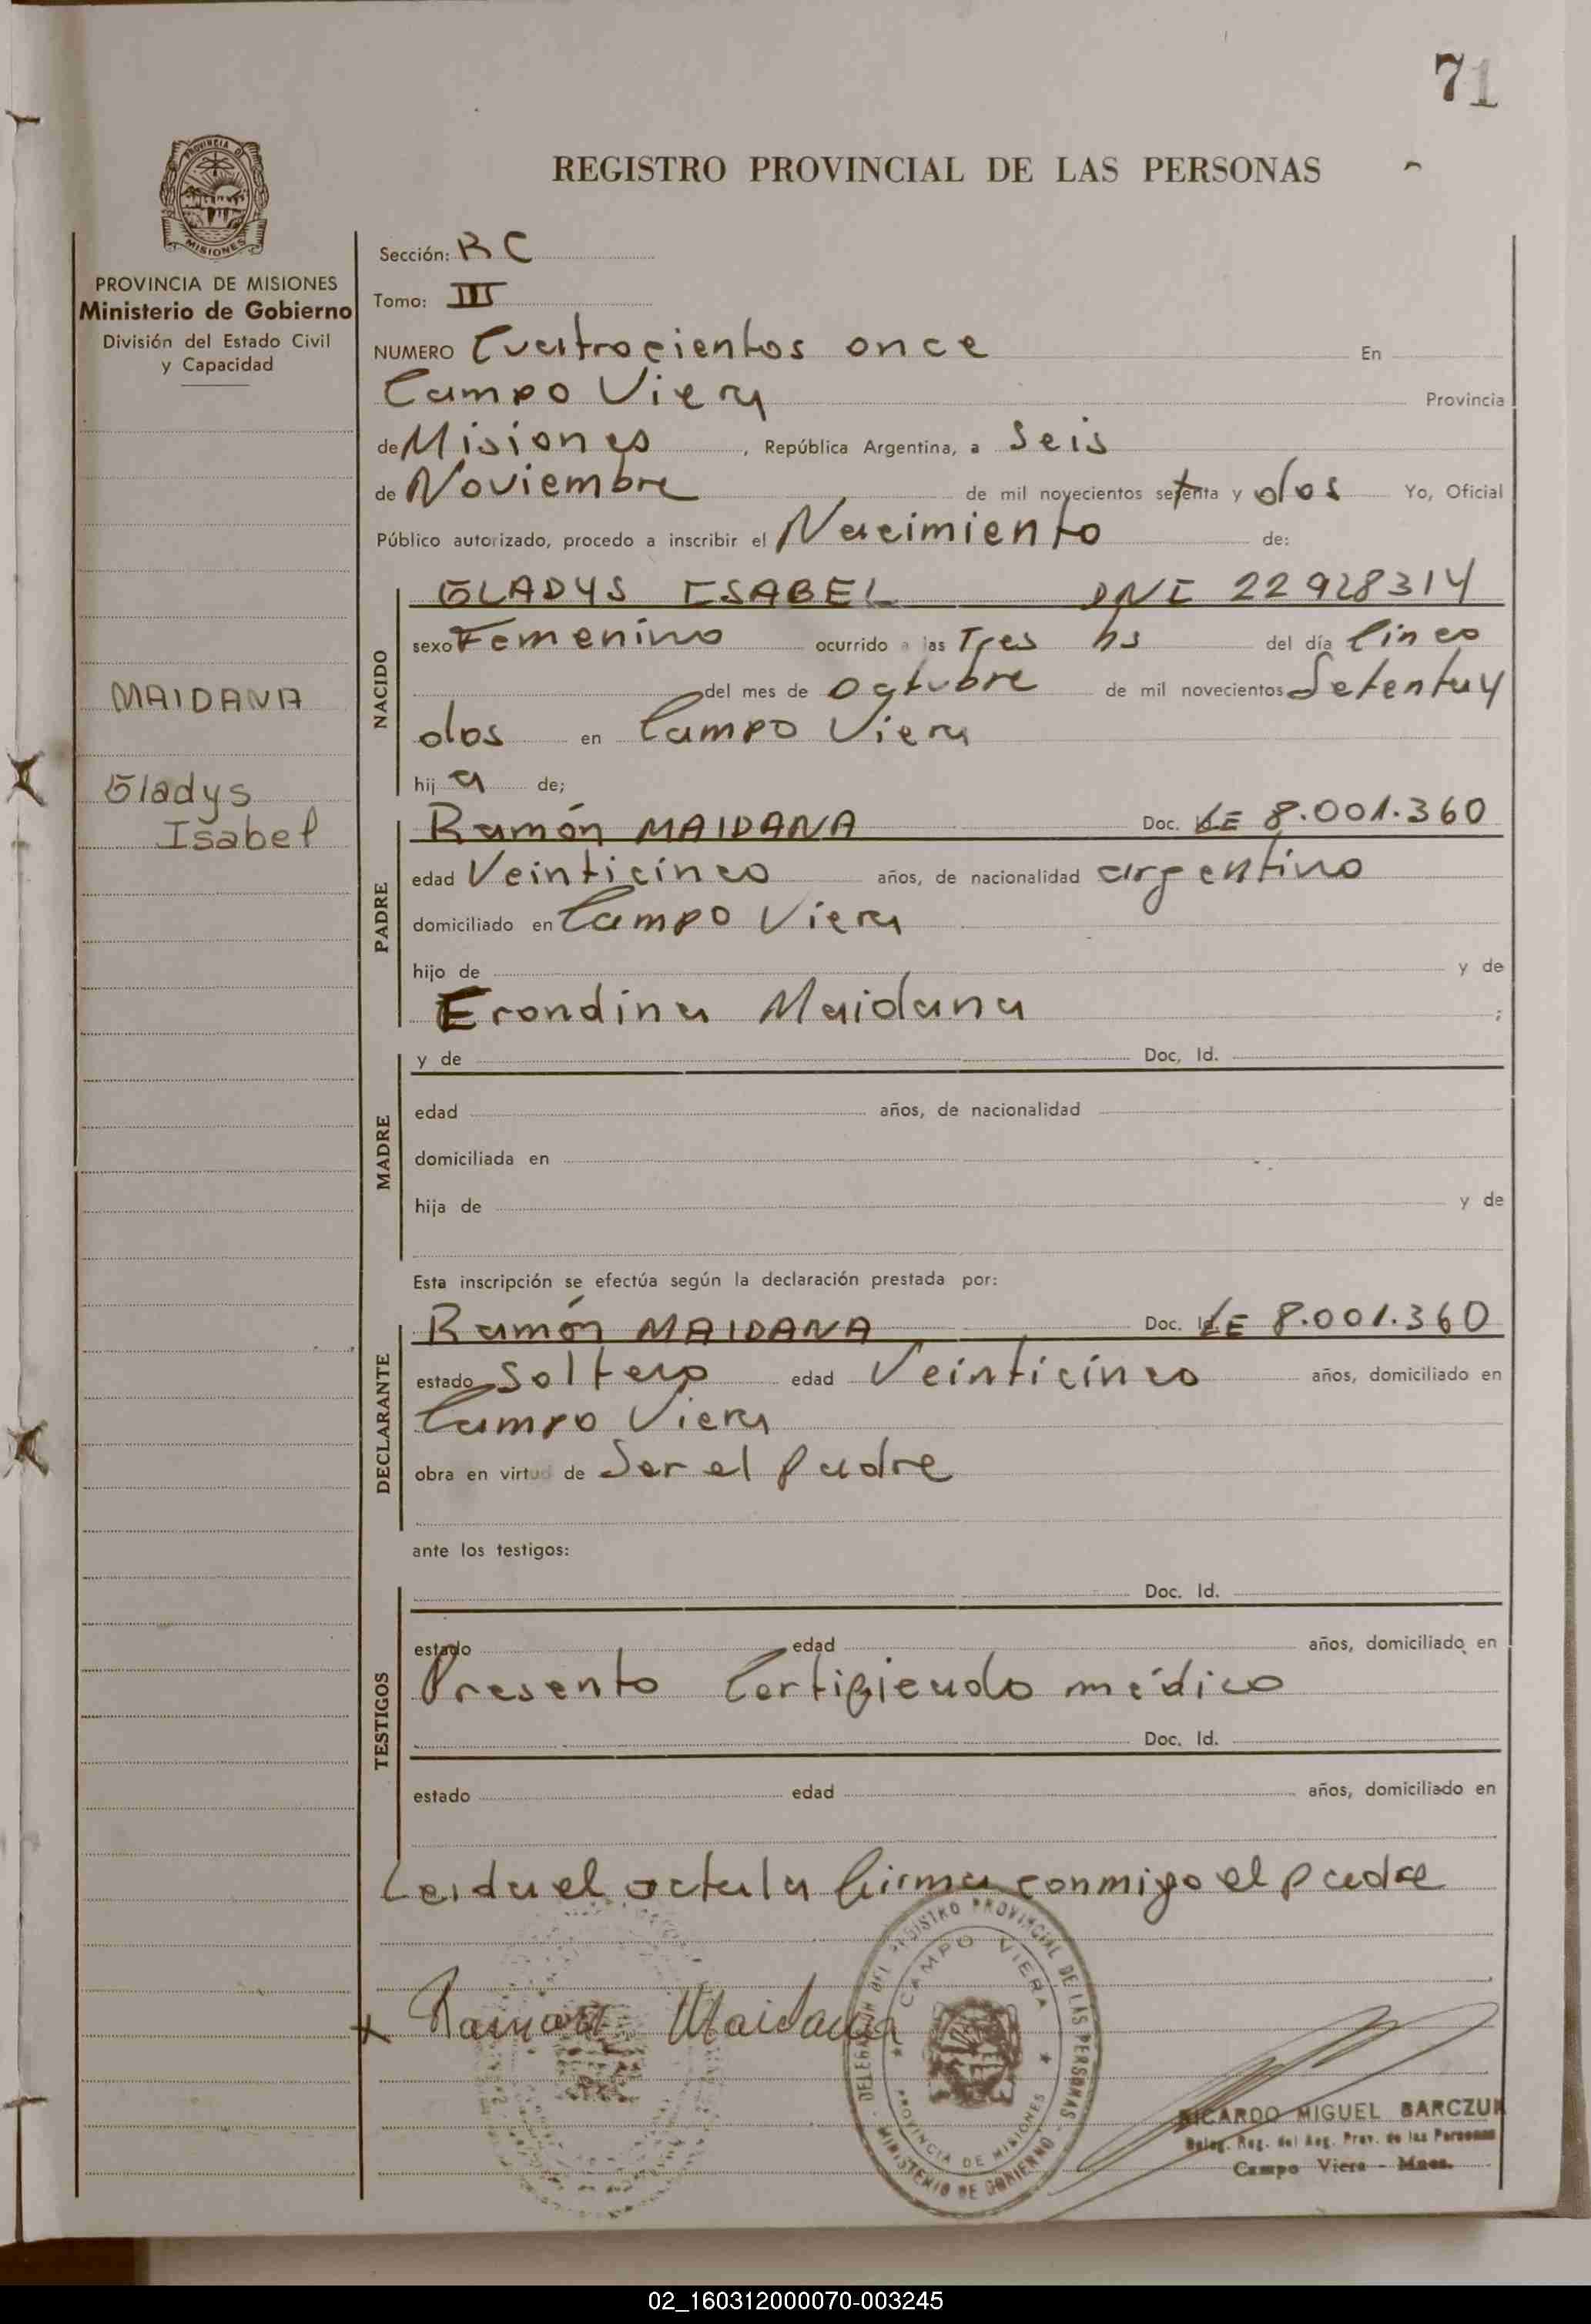 71
REGISTRO PROVINCIAL DE LAS PERSONAS
PROVINCIA DE MISIONES
Ministerio de Gobierno
División del Estado Civil
y Capacidad
MAIDANA
Gladys
Isabel
Sección: BC
Tomo: III
NUMERO Cuatrocientos once En
Campo Viera Provincia
de Misiones, República Argentina, a Seis
de Noviembre de mil novecientos setenta y dos Yo, Oficial
Público autorizado, procedo a inscribir el Nacimiento de:
NACIDO
GLADYS ISABEL DNI 22928314
sexo Femenino ocurrido a las Tres hs del día Cinco
del mes de Octubre de mil novecientos Setenta y
dos en Campo Viera
hij a de;
PADRE
Ramón MAIDANA Doc. LE 8.001.360
edad Veinticinco años, de nacionalidad argentino
domiciliado en Campo Viera
hijo de y de
Erondina Maidana ;
MADRE
y de Doc, Id.
edad años, de nacionalidad
domiciliada en
hija de y de
Esta inscripción se efectúa según la declaración prestada por:
DECLARANTE
Ramón MAIDANA Doc. Id. LE 8.001.360
estado Soltero edad Veinticinco años, domiciliado en
Campo Viera
obra en virtud de Ser el padre
ante los testigos:
TESTIGOS
Doc. Id.
estado edad años, domiciliado en
Presento Certificado médico
Doc. Id.
estado edad años, domiciliado en
Leida el acta la firma conmigo el padre
x Ramon Maidana
DELEGACION DEL REGISTRO PROVINCIAL DE LAS PERSONAS
CAMPO VIERA
PROVINCIA DE MISIONES
MINISTERIO DE GOBIERNO
RICARDO MIGUEL BARCZUK
Deleg. Reg. del Reg. Prov. de las Personas
Campo Viera - Mnes.
02_160312000070-003245